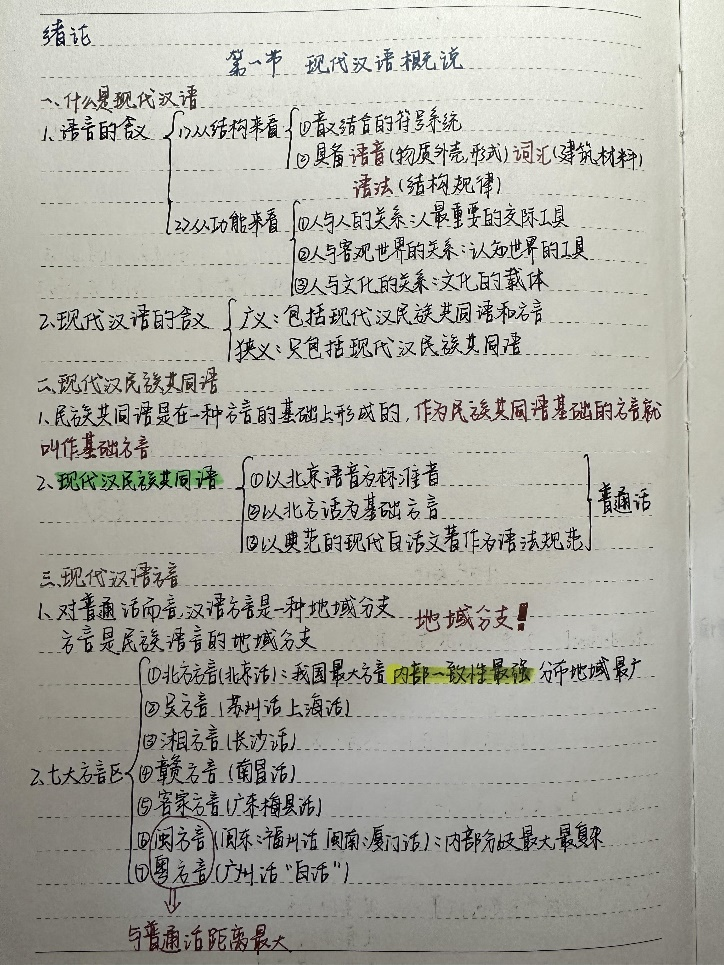 绪论
第一节 现代汉语概说
一、什么是现代汉语
1、语言的含义
1)从结构来看
①音义结合的符号系统
②具备语音(物质外壳,形式)词汇(建筑材料)
语法(结构规律)
2)从功能来看
①人与人的关系:人最重要的交际工具
②人与客观世界的关系:认知世界的工具
③人与文化的关系:文化的载体
2、现代汉语的含义
广义:包括现代汉民族共同语和方言
狭义:只包括现代汉民族共同语
二、现代汉民族共同语
1、民族共同语是在一种方言的基础上形成的,作为民族共同语基础的方言就
叫作基础方言
2、现代汉民族共同语
①以北京语音为标准音
②以北方话为基础方言
③以典范的现代白话文著作为语法规范
普通话
三、现代汉语方言
1、对普通话而言,汉语方言是一种地域分支
方言是民族语言的地域分支
地域分支!
2、七大方言区
①北方方言(北京话):我国最大方言 内部一致性最强 分布地域最广
②吴方言(苏州话上海话)
③湘方言(长沙话)
④赣方言(南昌话)
⑤客家方言(广东梅县话)
⑥闽方言(闽东:福州话 闽南:厦门话):内部分歧最大最复杂
⑦粤方言(广州话"白话")
与普通话距离最大